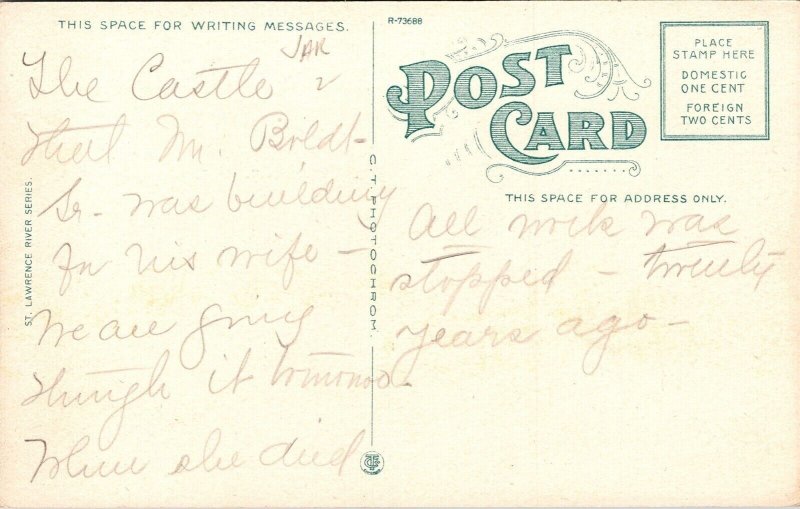 THIS SPACE FOR WRITING MESSAGES.
The Castle
that Mr. Boldt-
Sr. was building
for his wife -
We are going
through it tomorrow.
When she died
All work was
stopped - twenty
years ago -
ST. LAWRENCE RIVER SERIES.
C. T. PHOTOCHROM.
R-73688
POST CARD
THIS SPACE FOR ADDRESS ONLY.
PLACE
STAMP HERE
DOMESTIC
ONE CENT
FOREIGN
TWO CENTS